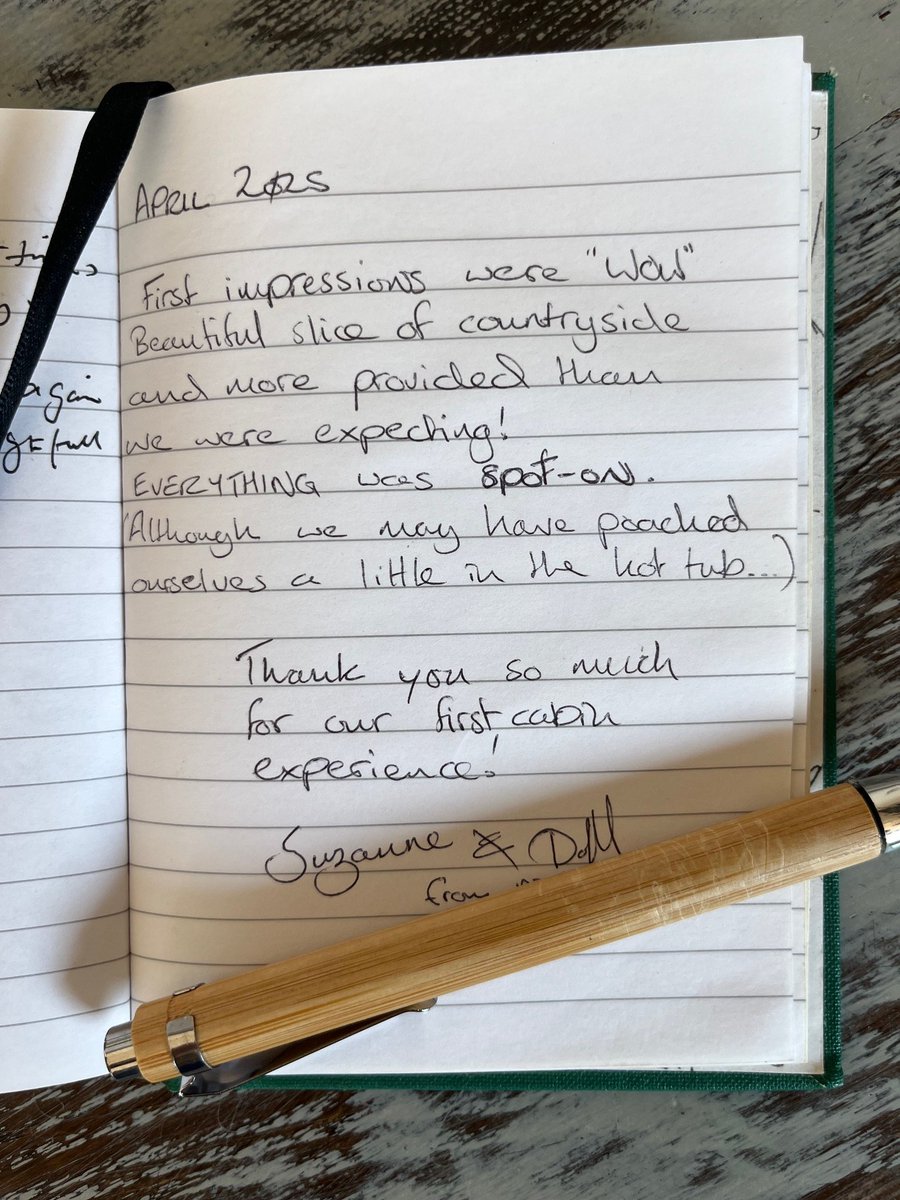 again
APRIL 2025
First impressions were "Wow"
Beautiful slice of countryside
and more provided than
we were expecting!
EVERYTHING was spot-on.
(Although we may have poached
ourselves a little in the hot tub...)
Thank you so much
for our first cabin
experience!
Suzanne &
from